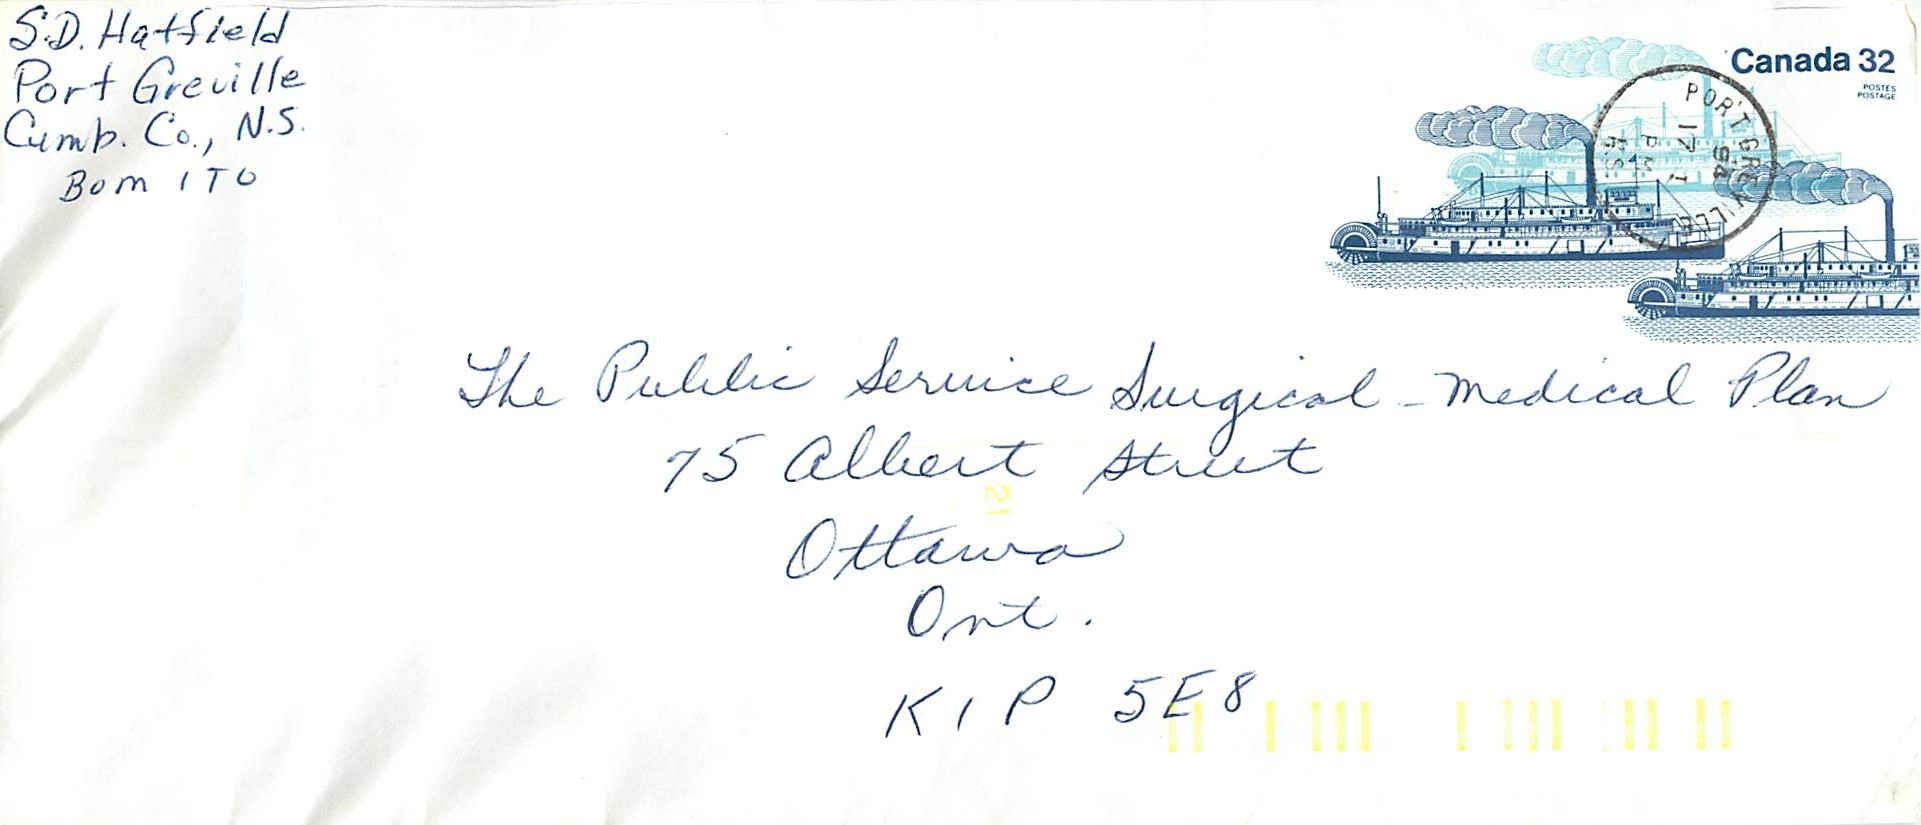 S.D. Hatfield
Port Greville
Cumb. Co., N.S.
BOM 1T0
Canada 32
POSTES
POSTAGE
PORT GREVILLE
94
17 I
PM
N.S.
The Public Service Surgical - Medical Plan
75 Albert Street
21
Ottawa
Ont.
K1P 5E8